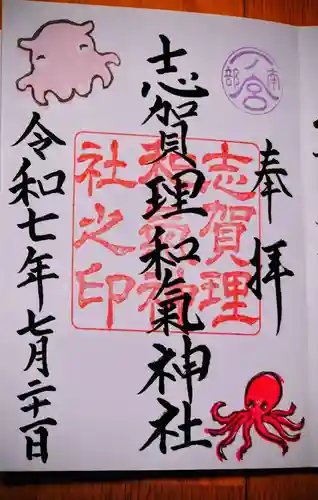 奉拝
志賀理和氣神社
令和七年七月二十一日
南部一ノ宮
志賀理
和氣神
社之印